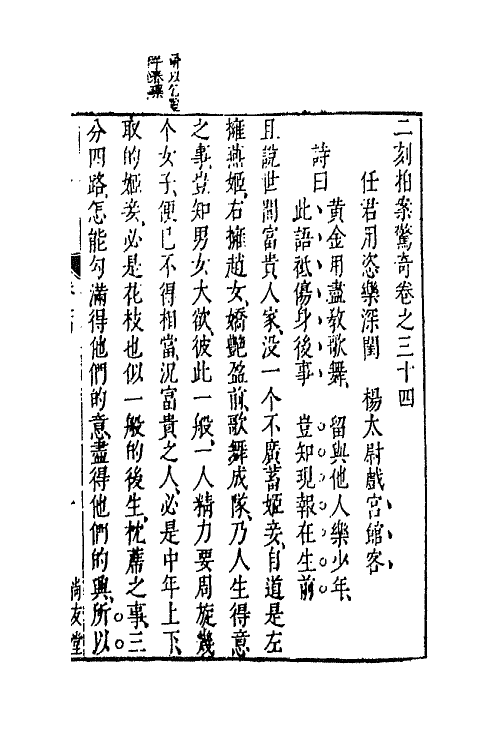 二刻拍案驚奇卷之三十四
任君用恣樂深閨　楊太尉戲宮館客
詩曰
黃金用盡教歌舞　留與他人樂少年
此語祇傷身後事　豈知現報在生前
且說世間富貴人家沒一个不廣蓄姬妾自道是左
擁燕姬右擁趙女嬌艷盈前歌舞成隊乃人生得意
之事豈知男女大欲彼此一般一人精力要周旋幾
个女子便已不得相當況富貴之人必是中年上下
取的姬妾必是花枝也似一般的後生枕蓆之事三
分四路怎能勾滿得他們的意盡得他們的興所以
尚友堂